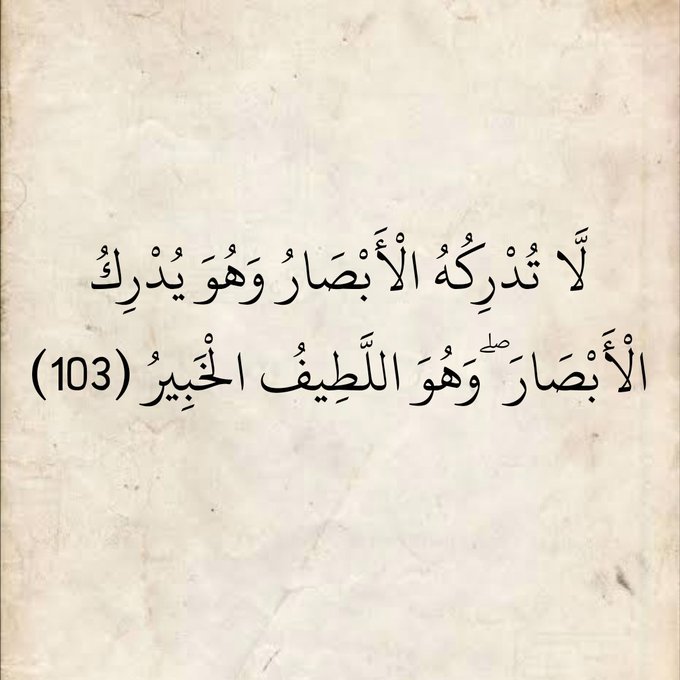 لَّا تُدْرِكُهُ الْأَبْصَارُ وَهُوَ يُدْرِكُ
الْأَبْصَارَ ۖ وَهُوَ اللَّطِيفُ الْخَبِيرُ (103)